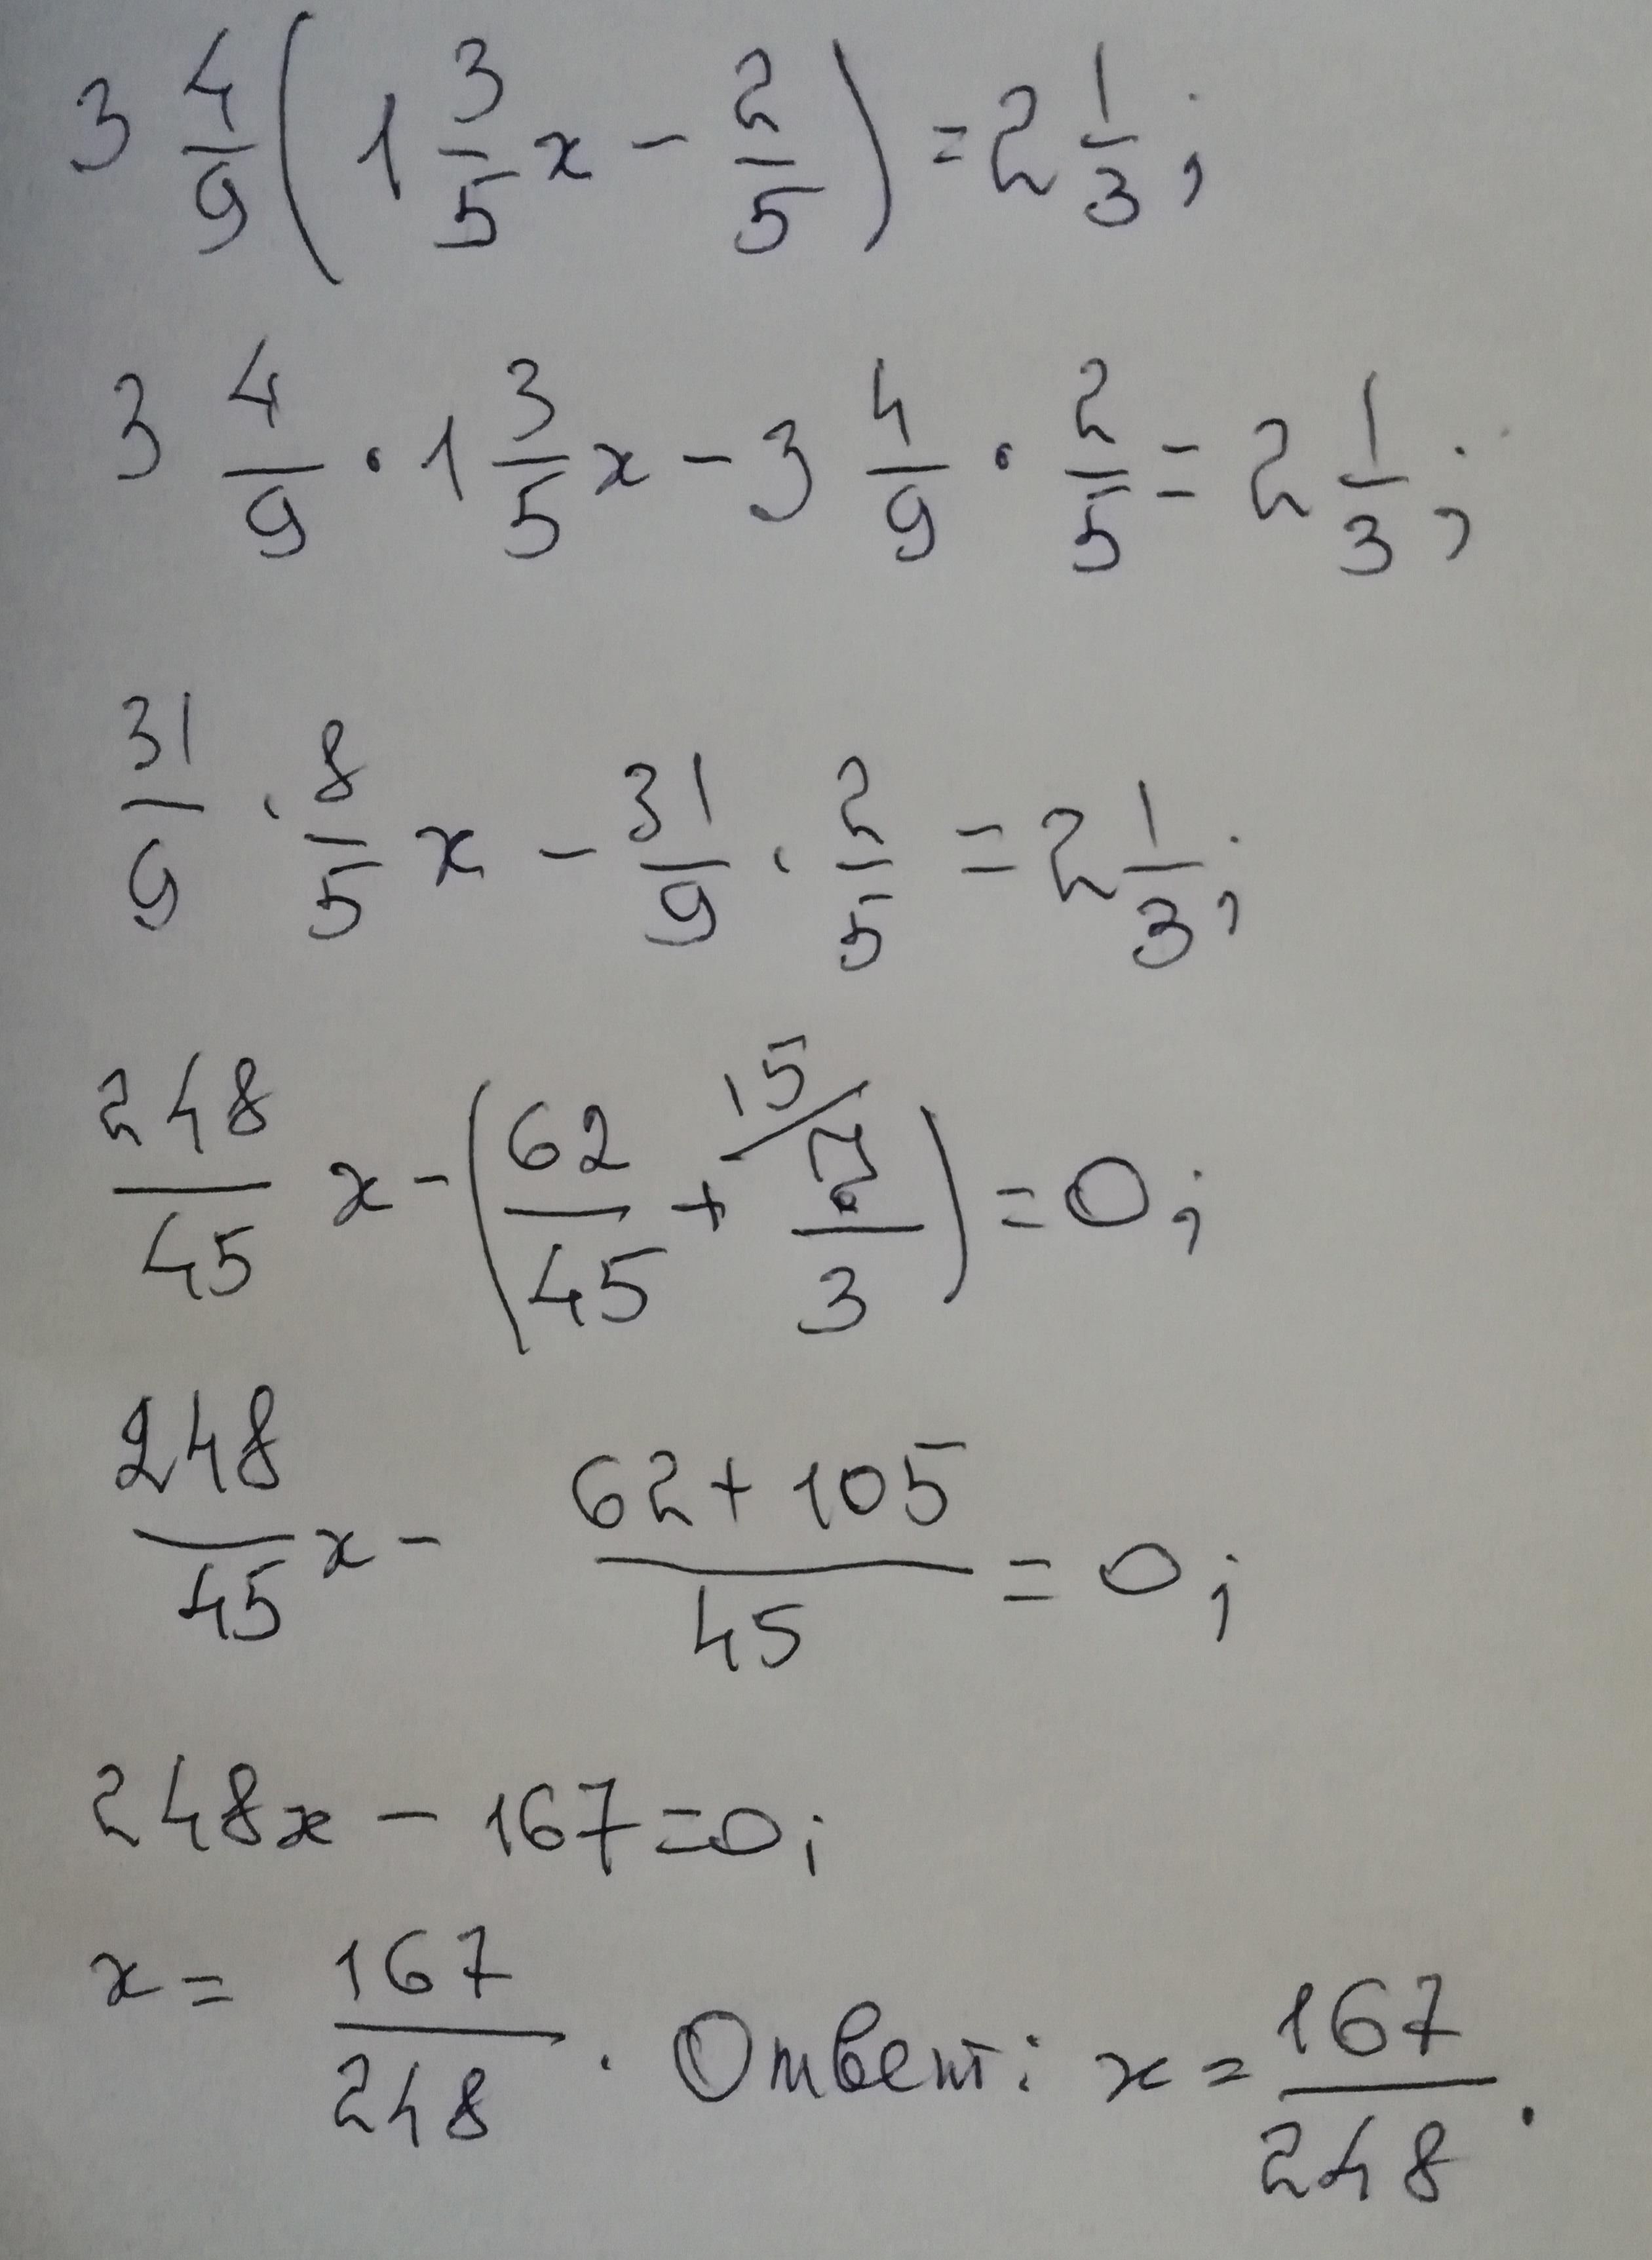 3 4/9 (1 3/5 x - 2/5) = 2 1/3;
3 4/9 · 1 3/5 x - 3 4/9 · 2/5 = 2 1/3;
31/9 · 8/5 x - 31/9 · 2/5 = 2 1/3;
248/45 x - (62/45 + 15/ 7/3) = 0;
248/45 x - (62+105)/45 = 0;
248x - 167 = 0;
x = 167/248. Ответ: x = 167/248.